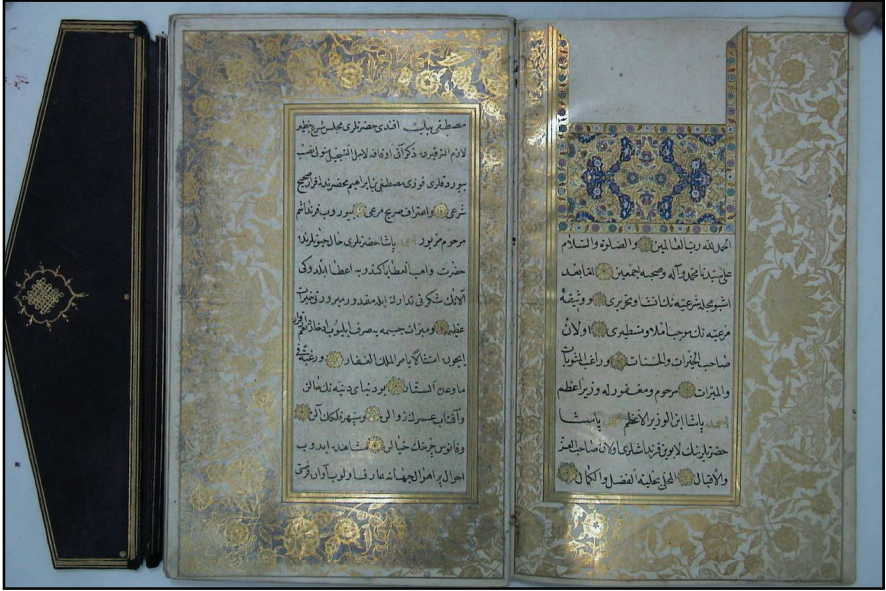 الحمد لله رب العالمين والصلوة والسلام
على سيدنا محمد وآله وصحبه اجمعين اما بعد
اشبو مجله شرعيه نك انشا وتحريرى ووثيقهٔ
مرعيه نك موجب املا وتسطيرى اولدر كه
صاحب الخيرات والحسنات وراغب المثوبات
والمبرات مرحوم ومغفور له وزير اعظم
احمد پاشا ابن الوزير الأعظم پاشا
حضرتلرينك لابوين قرنداشلرى اولان صاحب العز
والاقبال المحلى بحليه الفضل والكمال
مصطفى بك افندى حضرتلرى مجلس شرع خطير
لازم التوقيرده ذكر آتى اوقافه لاجل التسجيل متولى نصب
بيوردقلرى فوزى مصطفى بن ابراهيم محضرنده اقرار صحيح
شرعى واعتراف صريح مرعى بيوروب قرنداشم
مرحوم مزبور احمد پاشا حضرتلرى حال حيوتلرنده
حضرت واهب العطايا كندويه اعطا ايلدوكى
آلانك شكرنى تدارك ايله مقدور ومبرور نجه خيرات
عظيمه ومبرات جسيمه يه صرف ايليوب
ايچون امتثالا بامر الملك الغفار ورغبة فى
ما وعد الستار بو دنياى دنيه نك مآلن
وآفتاب عمرك زوالن وسپهر
وفانوس چرخك خيالن مشاهده ايدوب
احوال پر اهوال جهانه عارف اولوب آوان فرصتى